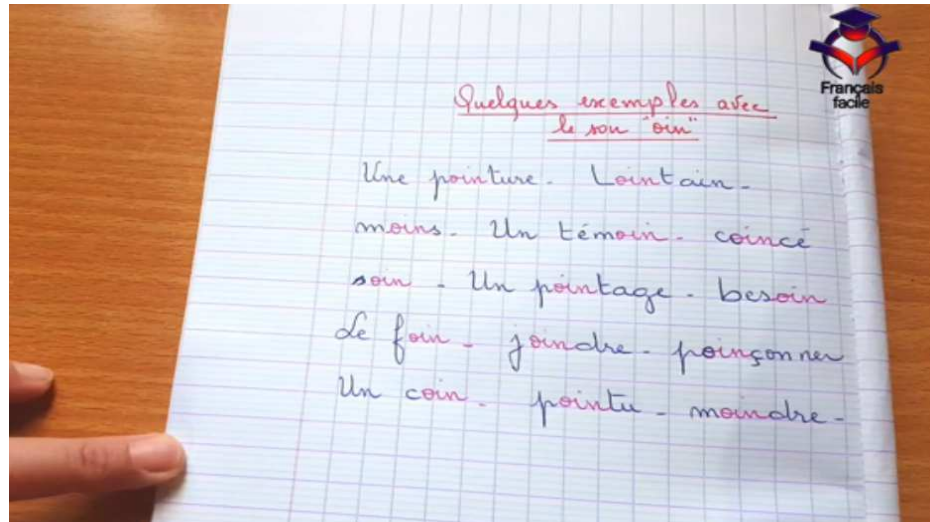 Français
facile
Quelques exemples avec
le son "oin"
Une pointure - Lointain -
moins - Un témoin - coincé
soin - Un pointage - besoin
Le foin - joindre - poinçonner
Un coin - pointu - moindre -